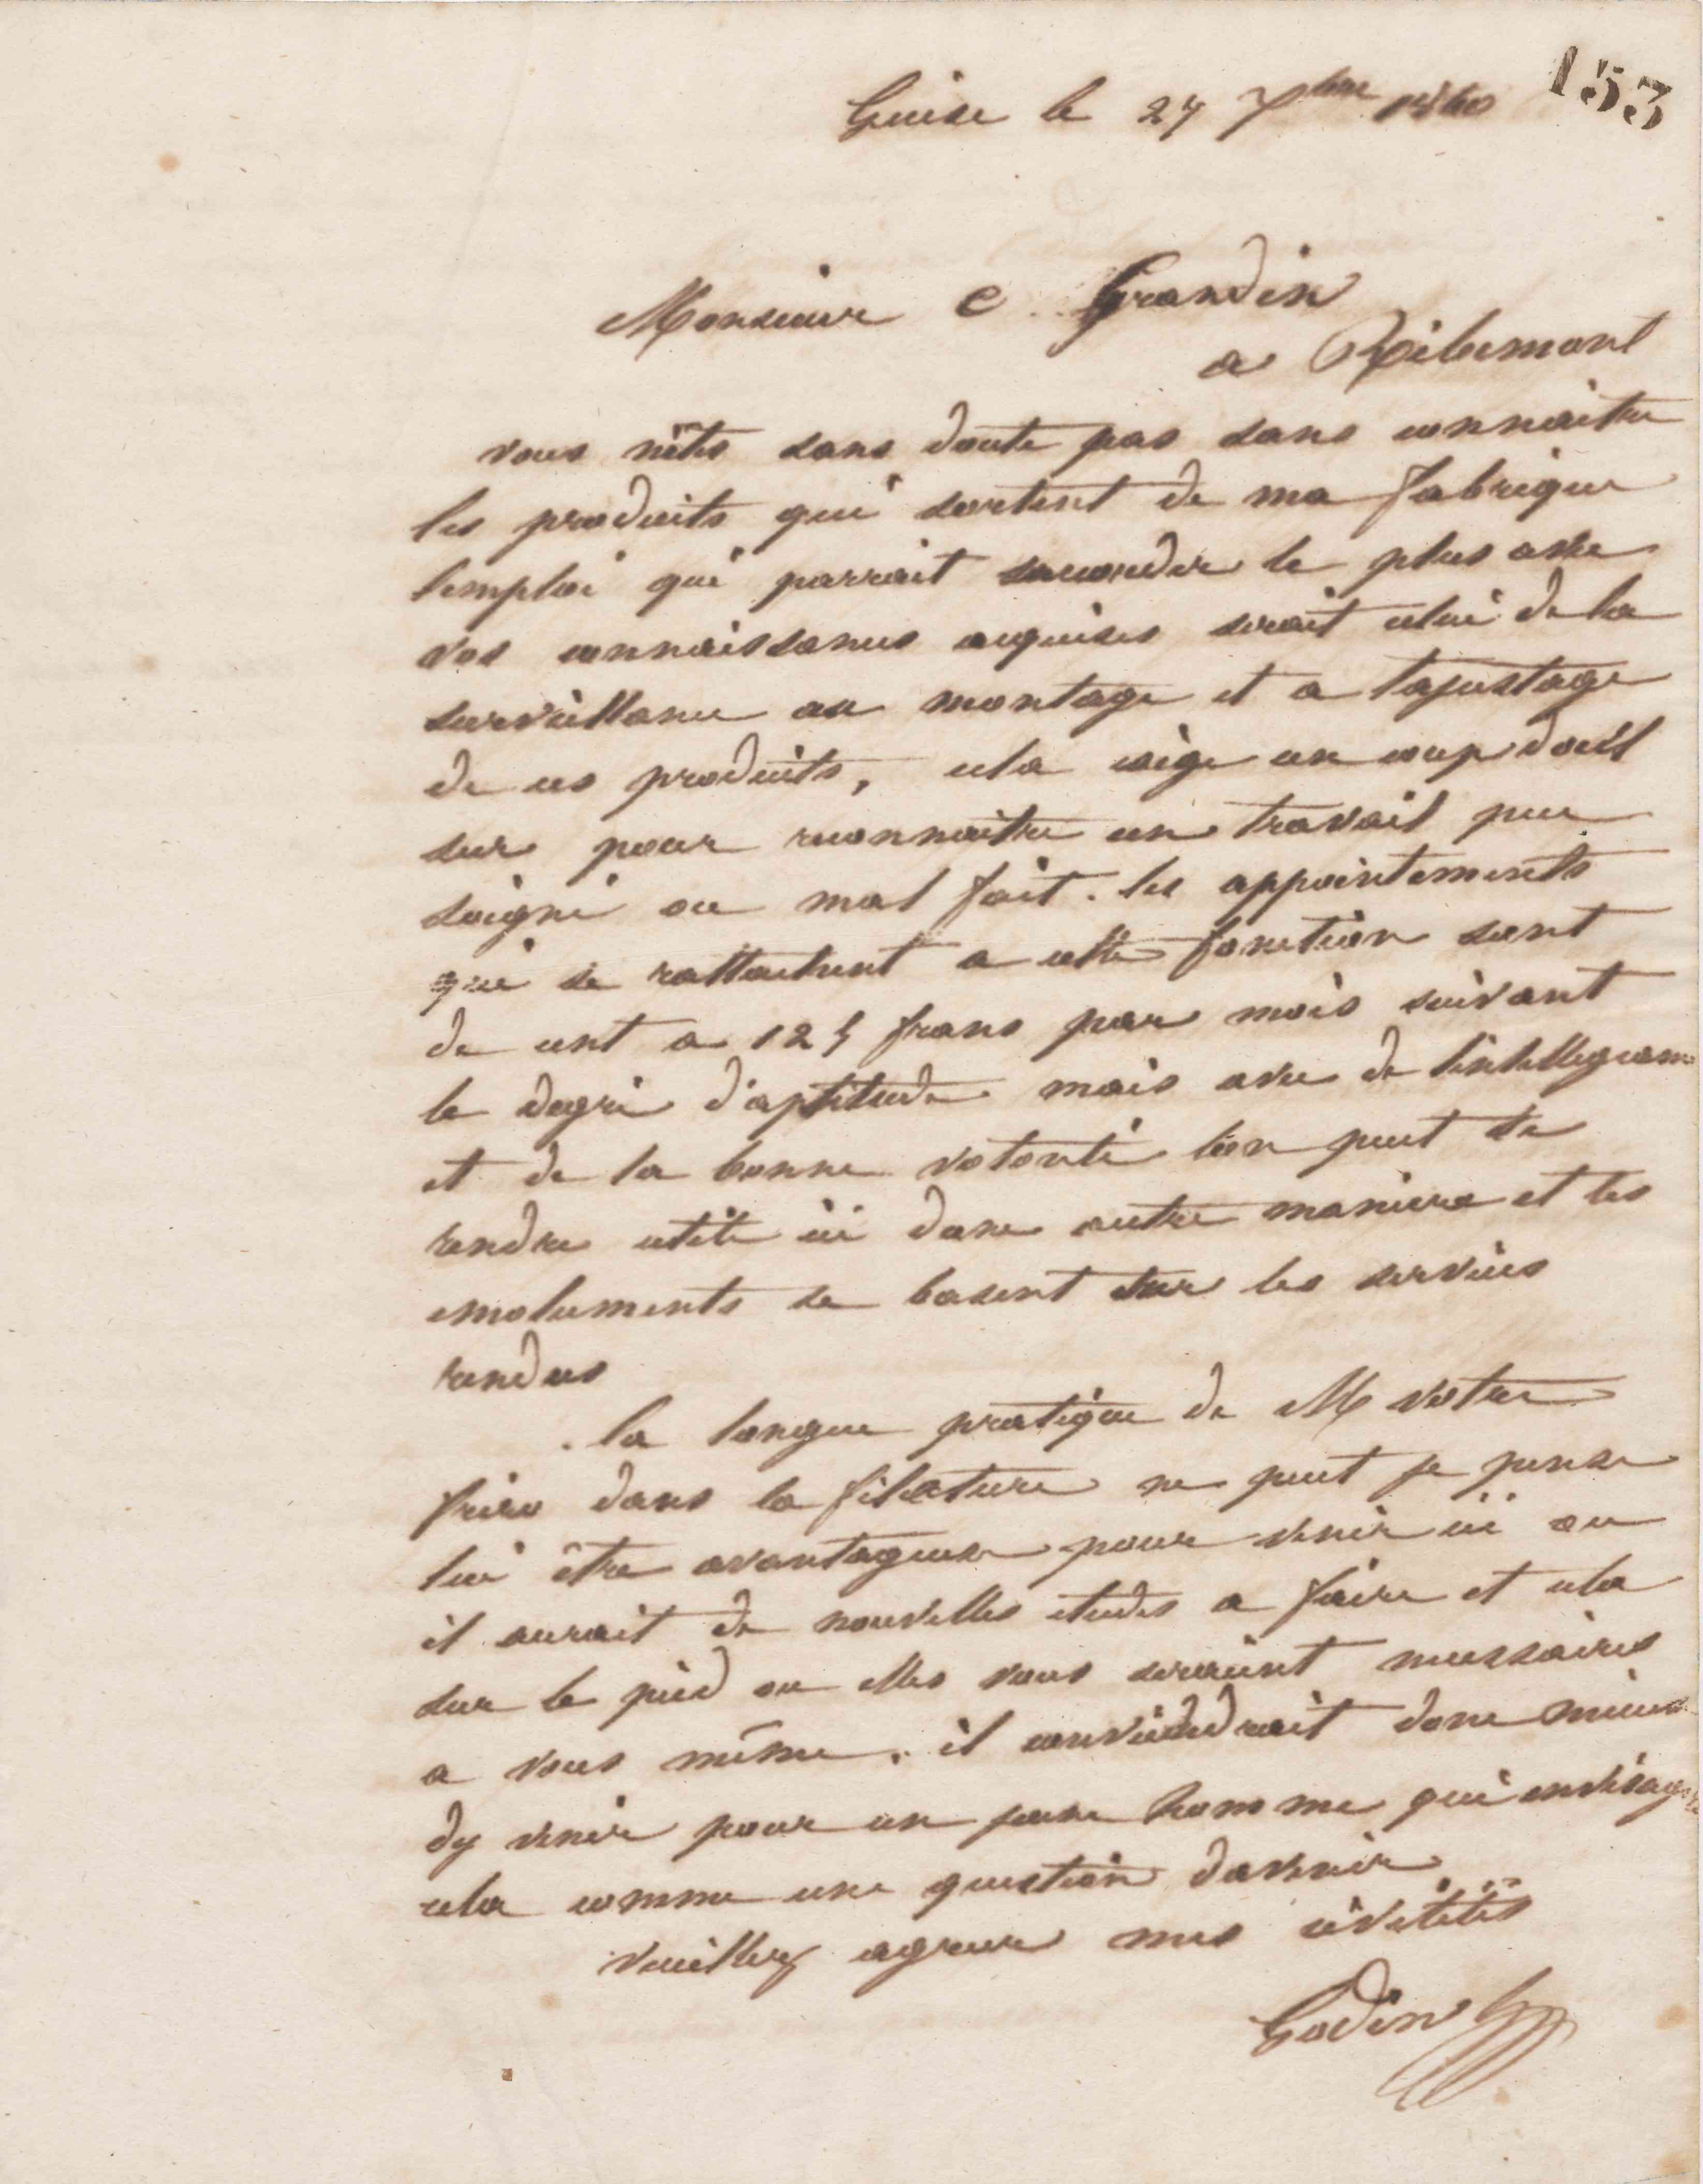 153
Guise le 27 7bre 1860
Monsieur C Grandin
a Ribemont
vous nêtes sans doute pas sans connaitre
les produits qui sortent de ma fabrique
lemploi qui parrait saccorder le plus avec
vos connaissances acquises serait celui de la
surveillance au montage et a lajustage
de ces produits, cela exige un coup doeil
sur pour reconnaitre un travail peu
soigné ou mal fait. les appointements
qui se rattachent a cette fonction sont
de cent a 125 francs par mois suivant
le degré d'aptitude mais avec de lintelligeance
et de la bonne volonté lon peut se
rendre utile ici dune autre maniere et les
emoluments se basent sur les services
rendus
. la longue pratique de M votre
frère dans la filature ne peut je pense
lui être avantageuse pour venir ici ou
il aurait de nouvelles etudes a faire et cela
sur le pied ou elles vous seraient necessaires
a vous même. il conviendrait donc mieux
dy venir pour un jeune homme qui envisage
cela comme une question davenir
veuillez agreer mes civilités
Godin